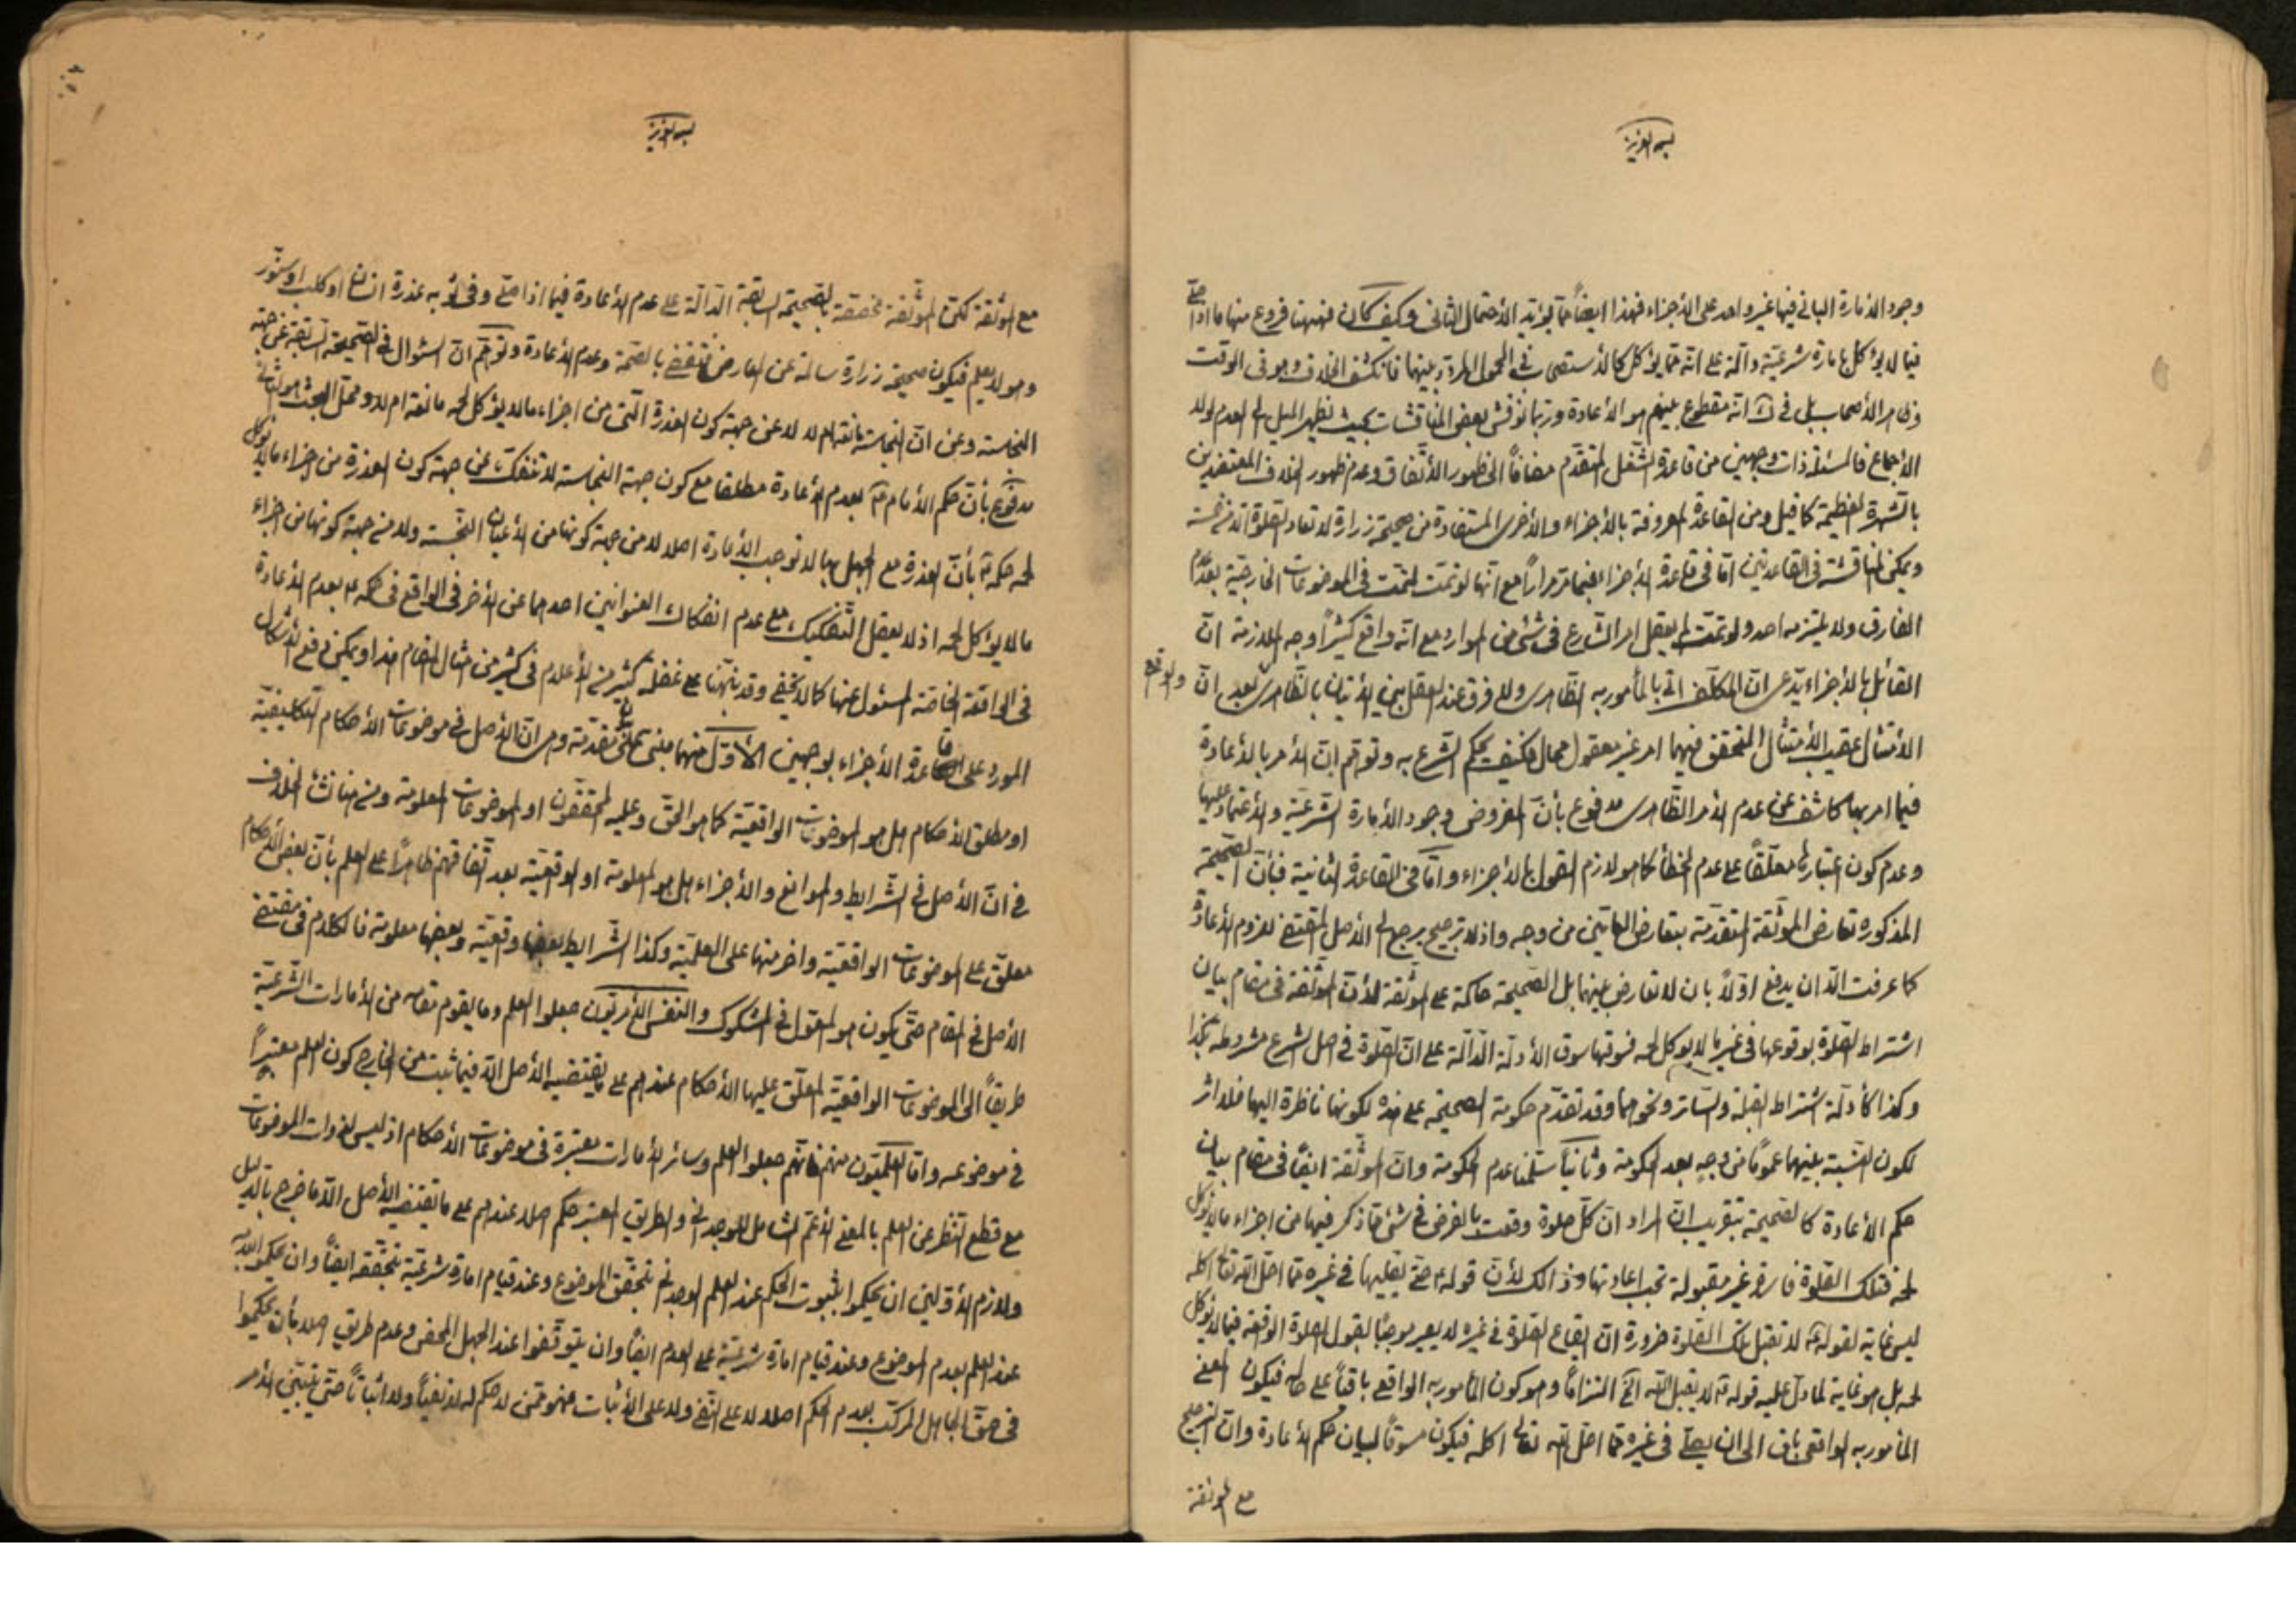 بسمه العزيز
وجود الأمارة الباني فيها غير واحد على الأجزاء فهذا ايضاً مما يؤيد الأحتمال الثاني وكيف كان فههنا فروع منها ما اذا صلّى
فيما لا يؤكل بامارة شرعيّة دالّة على انّه ممّا يؤكل كالأستصحاب في المحمول فانكشف الخلاف وهو في الوقت
انّه مقطوع بينهم هو الأعادة وربّما نوقش بعض المناقشات بحيث يظهر الميل الى العدم لولا
الأجماع فالمسئلة ذات وجهين من قاعدة الشغل المتقدّم مضافاً الى ظهور الأتّفاق وعدم ظهور الخلاف المعتضدين
بالشهرة العظيمة كما قيل ومن القاعدة المعروفة بالأجزاء والأخرى المستفادة من صحيحة زرارة لا تعاد الصلوة الّا من خمسة
ويمكن المناقشة في القاعدتين امّا في قاعدة الأجزاء فبما مرّ مراراً مع انّها لو تمّت لتمّت في الموضوعات الخارجيّة بعدم
الفارق ولا يلتزمه احد ولو تمّت لم يعقل امر الشارع في شئ من الموارد مع انّه واقع كثيراً وجه الملازمة انّ
القائل بالأجزاء يدّعى انّ المكلّف اتى بالمأمور به الظّاهرى ولا فرق عند العقل بين الأتيان بالظّاهرى بعد انّ
الأمتثال عقيب الأمتثال المتحقق فيهما امر غير معقول محال فكيف يحكم الشّرع به وتوهّم انّ الأمر بالأعادة
فيما امر بها كاشف عن عدم الأمر الظّاهرى مدفوع بأنّ المفروض وجود الأمارة الشّرعيّة والأعتماد عليها
وعدم كون اعتبارها معلّقاً على عدم الخطأ كما هو لازم القول بالأجزاء وامّا في القاعدة الثانية فبأنّ الصّحيحة
المذكورة تعارض الموثّقة المتقدّمة بتعارض العامّين من وجه واذ لا ترجيح يرجع الى الأصل المقتضى للزوم الأعادة
كما عرفت الّا ان يدفع اوّلاً بان لا تعارض بينهما بل الصّحيحة حاكمة على الموثّقة لأنّ الموثّقة في مقام بيان
اشتراط الصلوة بوقوعها في غير ما لا يؤكل لحمه فسوقها سوق الأدلّة الدّالّة على انّ الصلوة في اصل الشرع مشروطة بكذا
وكذا كأدلّة اشتراط القبلة والسّاتر ونحوهما وقد تقدّم حكومة الصّحيحة على هذه لكونها ناظرة اليها فلا اثر
لكون النّسبة بينهما عموماً من وجه بعد الحكومة وثانياً سلّمنا عدم الحكومة وانّ الموثّقة ايضاً في مقام بيان
حكم الأعادة كالصّحيحة بتقريب انّ المراد انّ كلّ صلوة وقعت بالفرض في شئ ممّا ذكر فيها من اجزاء ما لا يؤكل
لحمه فتلك الصّلوة فاسدة غير مقبولة تجب اعادتها وذلك لأنّ قوله ع حتّى يصلّيها في غيره ممّا احلّ اللّه تعالى اكله
ليس غاية لقوله ع لا تقبل تلك الصّلوة ضرورة انّ ايقاع الصّلوة في غيره لا يصير موجباً لقبول الصلوة الواقعة فيما لا يؤكل
لحمه بل هو غاية لما دلّ عليه قوله ع لا يقبل اللّه التزاماً وهو كون المأمور به الواقعى باقياً على حاله فيكون المعنى
المأمور به الواقعى باق الى ان يصلّى في غيره ممّا احلّ اللّه تعالى اكله فيكون مسوقاً لبيان حكم الأعادة وانّ الترجيح
مع الموثّقة
بسمه العزيز
مع الموثّقة لكنّ الموثّقة مخصّصة بالصّحيحة السابقة الدّالّة على عدم الأعادة فيما اذا صلّى وفي ثوبه عذرة انسان او كلب او سنّور
وهو لا يعلم فيكون صحيحة زرارة سالمة عن المعارض فتقضى بالصّحة وعدم الأعادة وتوهّم انّ السئوال في الصّحيحة السّابقة عن جهة
النجاسة وعن انّ النجاسة مانعة ام لا لا عن جهة كون العذرة الّتى من اجزاء ما لا يؤكل لحمه مانعة ام لا ومحلّ البحث هو الثّانى
مدفوع بأنّ حكم الأمام ع بعدم الأعادة مطلقا مع كون جهة النجاسة لا تنفكّ عن جهة كون العذرة من اجزاء ما لا يؤكل
لحمه حكم بأنّ العذرة مع الجهل بها لا توجب الأعادة اصلا لا من جهة كونها من الأعيان النّجسة ولا من جهة كونها من اجزاء
ما لا يؤكل لحمه اذ لا يعقل التّفكيك مع عدم انفكاك العنوانين احدهما عن الأخر في الواقع في حكمه ع بعدم الأعادة
في الواقعة الخاصّة المسئول عنها كما لا يخفى وقد نبّهنا على غفلة كثير من الأعلام في كثير من امثال المقام هذا ويمكن دفع الأشكال
المورد على قاعدة الأجزاء بوجهين الأوّل منهما مبنى على مقدّمة وهى انّ الأصل في موضوعات الأحكام التّكليفيّة
او مطلق الأحكام هل هو الموضوعات الواقعيّة كما هو الحقّ وعليه المحقّقون او الموضوعات المعلومة ومن هنا نشأ الخلاف
في انّ الأصل في الشّرايط والموانع والأجزاء هل هو المعلومة او الواقعيّة بعد اتّفاقهم ظاهراً على العلم بأنّ بعض الأحكام
معلّق على الموضوعات الواقعيّة واخر منها على العلميّة وكذا الشّرايط بعضها واقعيّة وبعضها معلومة فالكلام في مقتضى
الأصل في المقام حتّى يكون هو المعوّل في المشكوك والنفس الأمريّون جعلوا العلم وما يقوم مقامه من الأمارات الشّرعيّة
طريقاً الى الموضوعات الواقعيّة المعلّق عليها الأحكام عندهم على ما يقتضيه الأصل الّا فيما ثبت من الخارج كون العلم معتبراً
في موضوعه وامّا العلميّون منهم فانّهم جعلوا العلم وسائر الأمارات معتبرة في موضوعات الأحكام اذ ليس لذوات الموضوعات
مع قطع النّظر عن العلم بالمعنى الأعمّ الشامل للوجدانى والطريق المعتبر حكم اصلا عندهم على ما تقتضيه الأصل الّا ما خرج بالدّليل
ولازم الأوّلين ان يحكموا بثبوت الحكم عند العلم الوجدانى بتحقّق الموضوع وعند قيام امارة شرعيّة بتحقّقه ايضاً وان يحكموا بعدمه
عند العلم بعدم الموضوع وعند قيام امارة شرعيّة على العدم ايضاً وان يتوقّفوا عند الجهل المحض وعدم طريق اصلا بأن يحكموا
في حقّ الجاهل المركّب بعدم الحكم اصلا لا على النّفى ولا على الأثبات فهو ممّن لا حكم له لا نفياً ولا اثباتاً حتّى يتبيّن الأمر